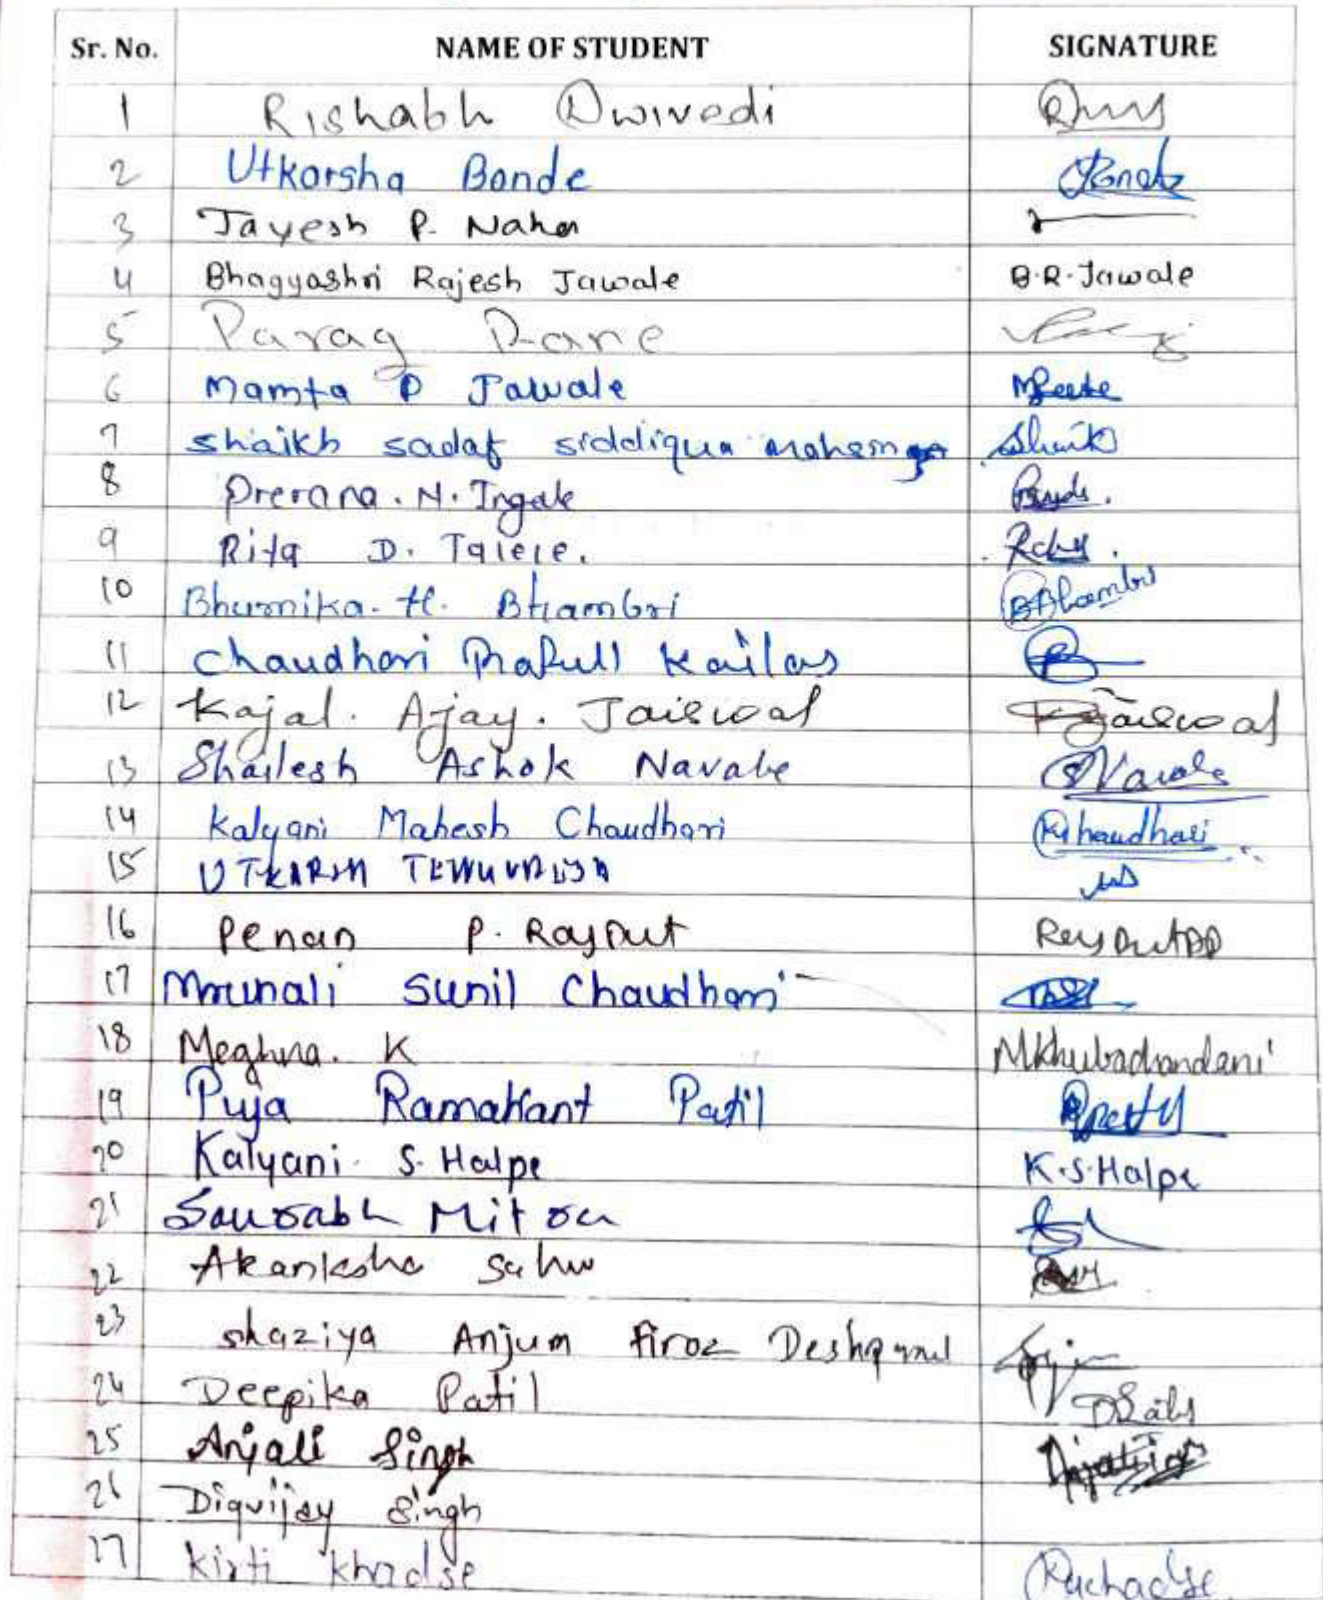 Sr. No. NAME OF STUDENT SIGNATURE
1 Rishabh Dwivedi
2 Utkarsha Bonde
3 Jayesh P. Naher
4 Bhagyashri Rajesh Jawale B.R.Jawale
5 Parag Rane
6 Mamta D Jawale
7 shaikh sadaf siddiqua Shaikh
8 Prerana. N. Ingale
9 Rita D. Talele.
10 Bhumika. H. Bhambri BBhambri
11 Chaudhari Prafull Kailas
12 Kajal. Ajay. Jaiswal Jaiswal
13 Shailesh Ashok Navale SNavale
14 Kalyani Mahesh Chaudhari KChaudhari
15 UTKARSH
16 Penan P. Rajput RajputPP
17 Mrunali Sunil Chaudhari
18 Meghna. K MKhubachandani
19 Puja Ramakant Patil
20 Kalyani. S. Halpe K.S.Halpe
21 Sourabh Mitra
22 Akanksha Sahu
23 shaziya Anjum firoz Deshmund
24 Deepika Patil
25 Anjali Singh
26 Digvijay Singh
27 kirti khadse